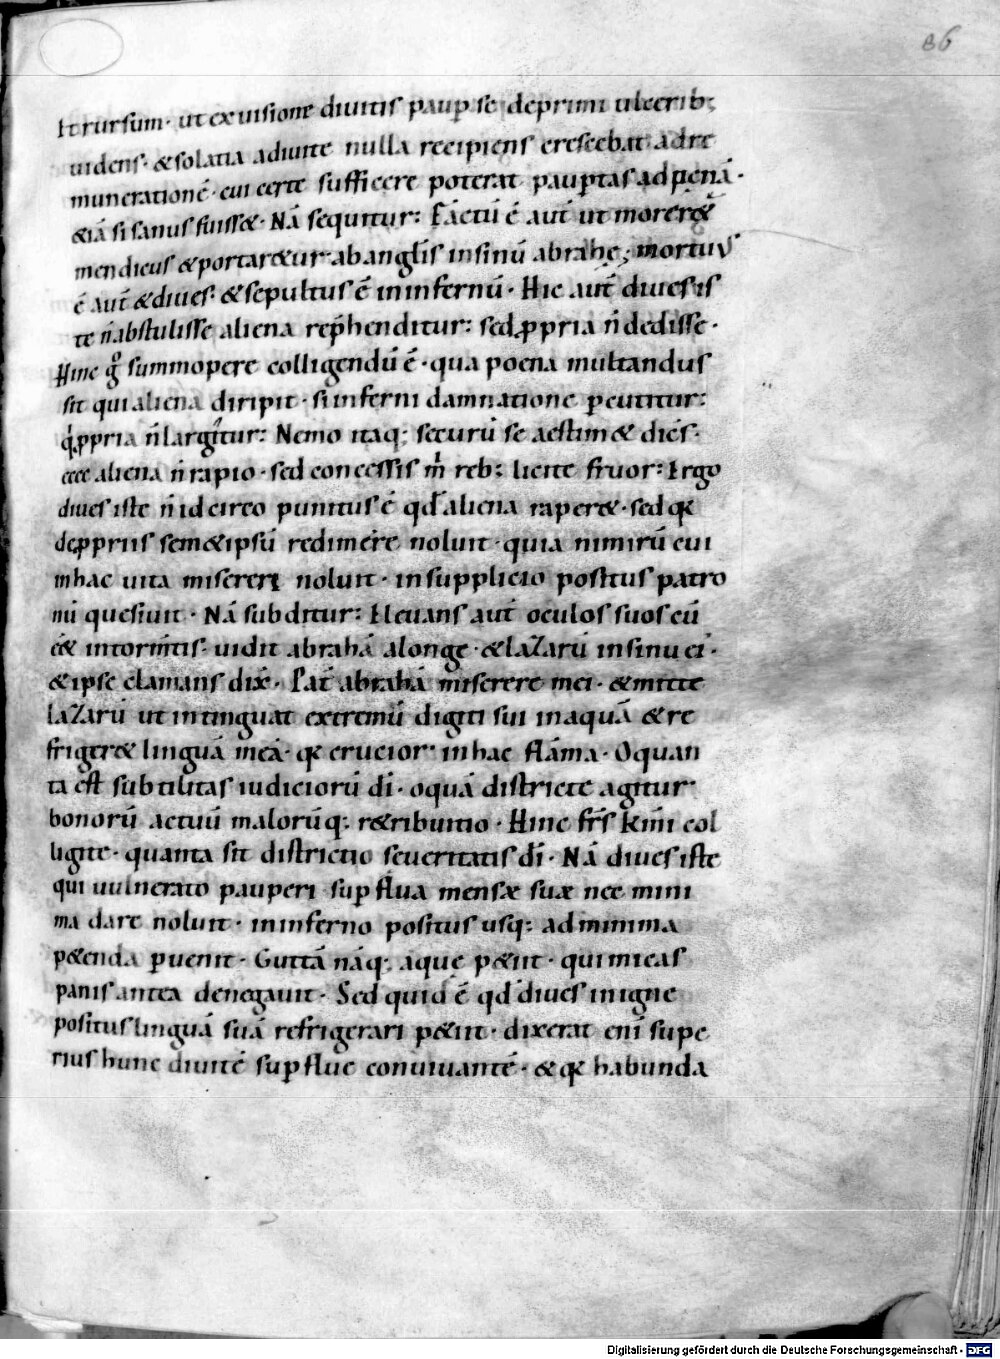 86
Et rursum· ut ex uisione diuitis paup̱ se deprimi ulcerib;
uidens· & solatia a diuite nulla recipiens cresceba&#116; ad re
munerationē· cui certe sufficere poterat paup̱tas ad penā·
&iā si sanus fuiss&· Nā sequitur: Factū ē aut̄ ut morer&
mendicus & portar&ur ab angl̄is in sinū abrahę; mortuus
ē aut̄ & diues· & sepultus ē in infernū· Hic aut̄ diues is
te n̄ abstulisse aliena rep̄henditur: sed p̱pria n̄ dedisse·
Hinc g° summopere colligendū ē· qua poena multandus
sit qui aliena diripit· si inferni damnatione p̱cutitur:
q p̱pria n̄ largitur: Nemo itaq; securū se aestim& dic̄s·
ecce aliena n̄ rapio· sed concessis m̄ reb; licite fruor: Ergo
diues iste n̄ idcirco punitus ē qd̄ aliena raper&· sed qꝛ
de p̱priis sem&ipsū redimere noluit· quia nimirū cui
in hac uita misereri noluit· in supplicio positus patro
nū quesiuit· Nā subditur: Eleuans aut̄ oculos suos cū
ēē& in torm̄tis· uidit abrahā a longe· & lazarū in sinu ei'·
& ipse clamans dix̄· Pat̄ abrahā miserere mei· & mitte
lazarū ut intinguat extremū digiti sui in aquā & re
friger& linguā meā· qꝛ crucior in hac flāma· O quan
ta est subtilitas iudiciorū dī· o quā districte agitur
bonorū actuū malorūq; r&ributio· Hinc frs̄ km̄i col
ligite· quanta sit districtio seueritatis dī· Nā diues iste
qui uulnerato pauperi sup̱flua mensæ suæ nec mini
ma dare noluit· in inferno positus usq; ad minima
p&enda p̱uenit· Guttā nāq; aquę p&iit· qui micas
panis antea denegauit· Sed quid ē qd̄ diues in igne
positus linguā suā refrigerari p&iit· dixerat enī supe
rius hunc diuitē sup̱flue conuiuantē· & qꝛ habunda
Digitalisierung gefördert durch die Deutsche Forschungsgemeinschaft - DFG